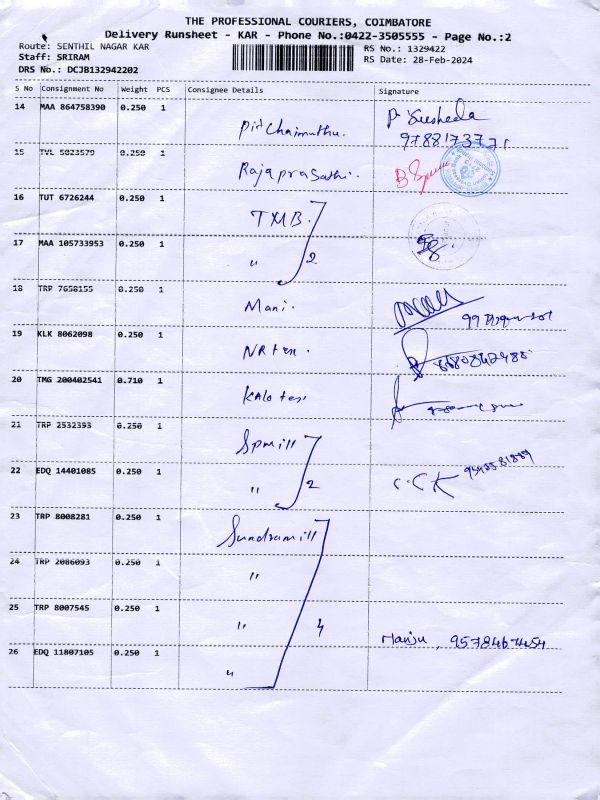 THE PROFESSIONAL COURIERS, COIMBATORE
Delivery Runsheet - KAR - Phone No.:0422-3505555 - Page No.:2
Route: SENTHIL NAGAR KAR RS No.: 1329422
Staff: SRIRAM RS Date: 28-Feb-2024
DRS No.: DCJB132942202
S No Consignment No Weight PCS Consignee Details Signature
14 MAA 864758390 0.250 1
15 TVL 5023579 0.250 1 Rajaprasathi.
16 TUT 6726244 0.250 1 TMB.
17 MAA 105733953 0.250 1 " 2
18 TRP 7658155 0.250 1 Mani.
19 KLK 8062098 0.250 1 NRtex.
20 TMG 200402541 0.710 1 Kalotex
21 TRP 2532393 0.250 1 Spmill
22 EDQ 14401085 0.250 1 " 2
23 TRP 8008281 0.250 1 Sundramill
24 TRP 2086093 0.250 1 "
25 TRP 8007545 0.250 1 " 4 Manju,
26 EDQ 11807105 0.250 1 "